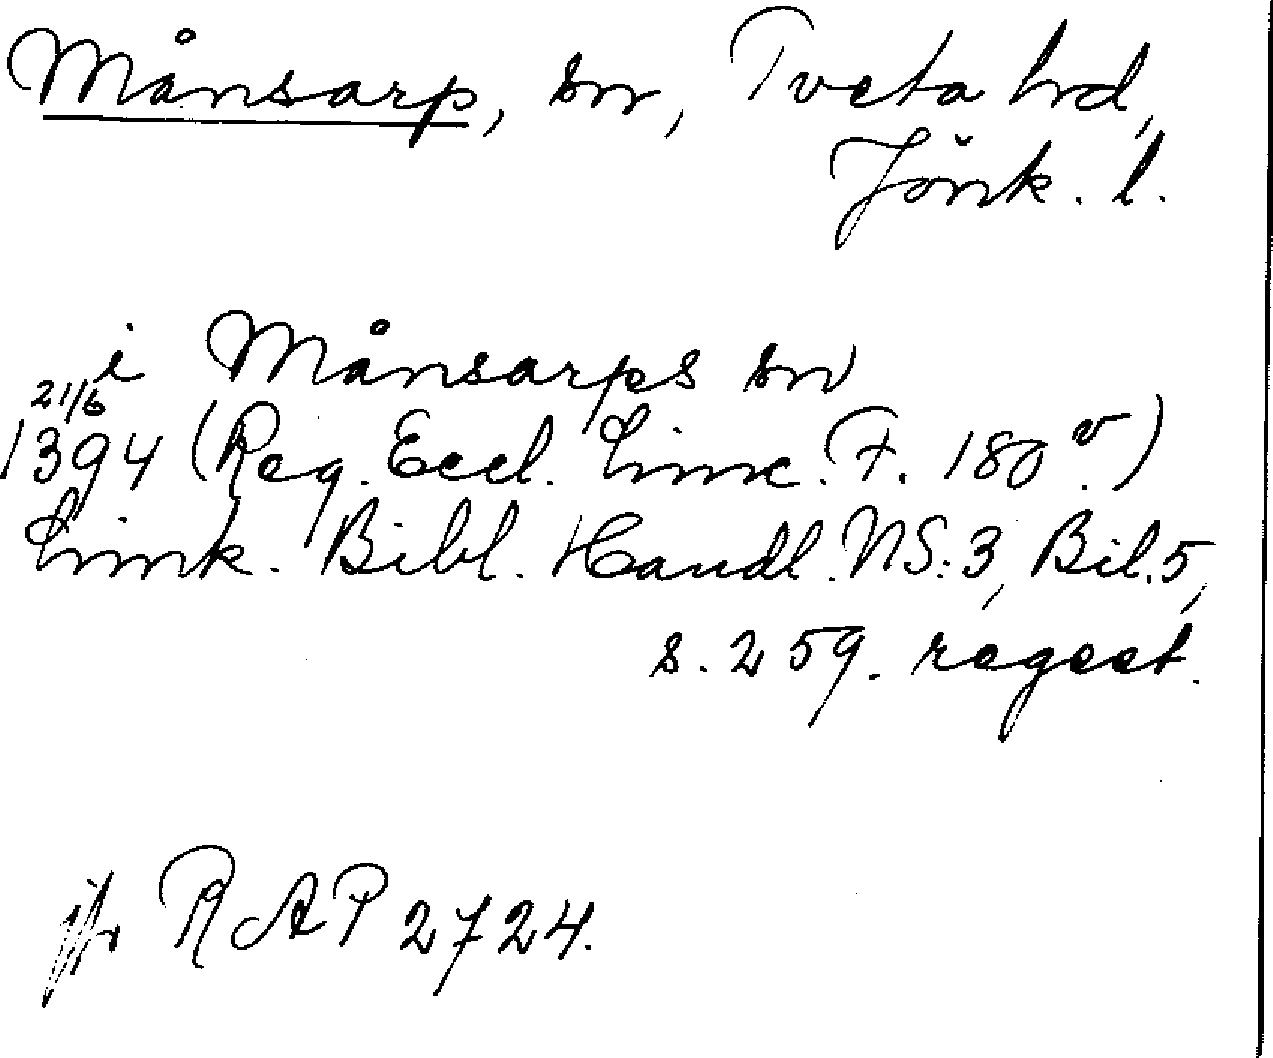 Månsarp, sn, Tveta hrd,
Jönk. l.
i Månsarps sn
21/6
1394 (Reg. Eccl. Linc. F. 180 v.)
Link. Bibl. Handl. NS: 3, Bil. 5,
s. 259. regest.
jfr RAP 2724.